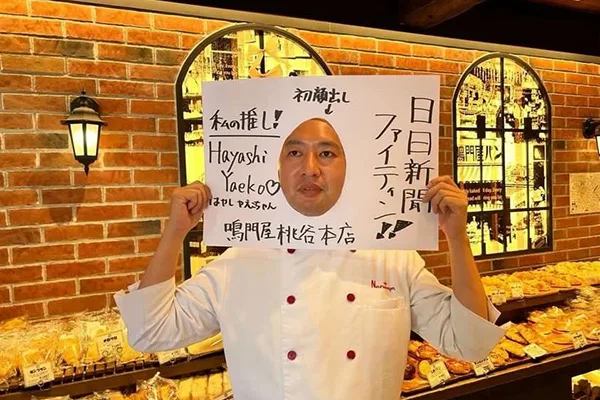 初顔出し
↓
私の推し!
Hayashi
Yaeko♡
はやしやえちゃん
日日新聞
ファイティン!!
鳴門屋桃谷本店
鳴門屋パン